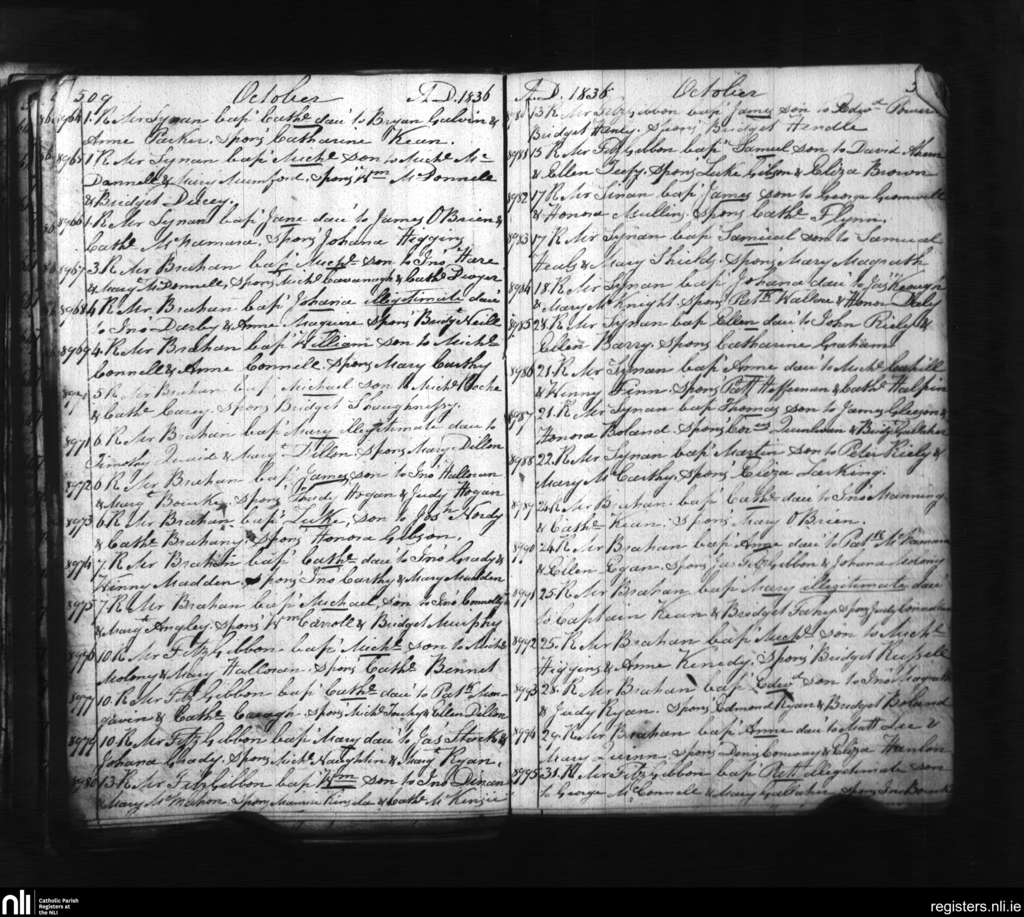 509 October A.D. 1836
8964 1. R Mr Synan bap.d Cathe dau.r to Bryan Galvin &
Anne Parker. Spons.r Catharine Kean.
8965 1. R Mr Synan bap.d Michl. son to Michl. Mc
Donnell & Mary Mumford. Spons.r Wm McDonnell
& Bridget Dilcey.
8966 1. R Mr Synan bap.d Jane dau.r to James O'Brien &
Cathe. McNamara. Spons.r Johana Higgins
8967 3. R Mr Brahan bap.d Michl. son to Jno Hare
& Mary McDonnell, Spons.r Michl Cavanagh & Cathe Dwyer
8968 4 R Mr Brahan bap.d Johana illegitimate dau.r
to Jno Darby & Anne Maguire Spons.r Bridgt Neill
8969 4. R Mr Brahan bap.d William son to Michl.
Connell & Anne Connell Spons.r Mary Carthy
5 R Mr Brahan bap.d Michael son to Michl Roche
& Cathe Carey Spons.r Bridget Shaughnessy.
8971 6 R Mr Brahan bap.d Mary illegitimate dau.r to
Timothy Quaid & Mary Dillon Spons.r Mary Dillon
8972 6 R Mr Brahan bap.d James son to Jno Halloran
& Margt Bourke Spons.r Thady Hogan & Judy Hogan
8973 6 R Mr Brahan bap.d Luke, son to Josh Hordy
& Cathe Brahany. Spons.r Honora Gibson.
8974 7. R Mr Brahan bap.d Cathe dau.r to Jno Grady &
Winny Madden. Spons.r Jno Carthy & Mary Madden
8975 7 R Mr Brahan bap.d Michael, son to Jno Connelly
& Margt Angley Spons.r Wm Carroll & Bridget Murphy
8976 10. R Mr FitzGibbon bap.d Michl. son to Michl.
Molony & Mary Halloran Spons.r Cathe. Bennet
8977 10. R Mr FitzGibbon bap.d Cathe dau.r to Patk
& Cathe Spons.r Michl & Ellen Dillon
8979 10. R Mr FitzGibbon bap.d Mary dau.r to Jas Stork &
Johana Grady. Spons.r Michl. Naughten & Margt Ryan.
8980 13. R Mr FitzGibbon bap.d Wm son to Jno Dinan
& Mary McMahon Spons.r Maurice & Cathe McKinzie
A.D. 1836 October
13 R Mr FitzGibbon bap.d James son to Edwd Power
Bridget Henly. Spons.r Bridget Hendle
8981 15 R Mr FitzGibbon bap.d Samuel son to David Ahern
& Ellen Leefy. Spons.r Luke Gibson & Eliza Brown
8982 17 R Mr Sinan bap.d James son to George Gromwell
& Honora Mullins. Spons.r Cathe. Flynn.
8983 17 R Mr Synan bap.d Samuel son to Samuel
Heals & Mary Shields. Spons.r Mary Magrath
8984 18. R Mr Synan bap.d Johana dau.r to Jas Keough
& Mary McKnight Spons.r Patk Wallace & Honor Daly
8985 28. R Mr Synan bap.d Ellen dau.r to John Riely &
Ellen Barry. Spons.r Catharine Graham
8986 21. R Mr Synan bap.d Anne dau.r to Michl Cahill
& Winny Finn Spons.r Patt Heffernan & Cathe Halpin
8987 21. R Mr Synan bap.d Thomas son to James Gleeson &
Honora Boland. Spons.r Corns Quinlivan & Bridgt
8988 22. R Mr Synan bap.d Martin son to Peter Riely &
Mary McCarthy Spons.r Eliza Larking.
8989 24 R Mr Brahan bap.d Cathe dau.r to Jno Manning
& Cathe. Kean. Spons.r Mary O'Brien.
8990 24. R Mr Brahan bap.d Anne dau.r to Patk McNamara
& Ellen Egan. Spons.r Jas FitzGibbon & Johana
8991 25 R Mr Brahan bap.d Mary illegitimate dau.r
to Captain Kean & Bridget Fahey Spons.r Judy
8992 25. R Mr Brahan bap.d Michl. son to Michl.
Higgins & Anne Kenedy. Spons.r Bridget Russell
8993 28. R Mr Brahan bap.d Edwd son to Jno Magrath
& Judy Ryan. Spons.r Edmond Ryan & Bridget Boland
8994 29. R Mr Brahan bap.d Anne dau.r to Matt Lee &
Mary Quinn Spons.r Denis Conway & Eliza Hanlon
8995 31. R Mr FitzGibbon bap.d Patt illegitimate son
to George McConnell & Mary Gallaher Spons.r Jno
nli Catholic Parish
Registers at
the NLI
registers.nli.ie